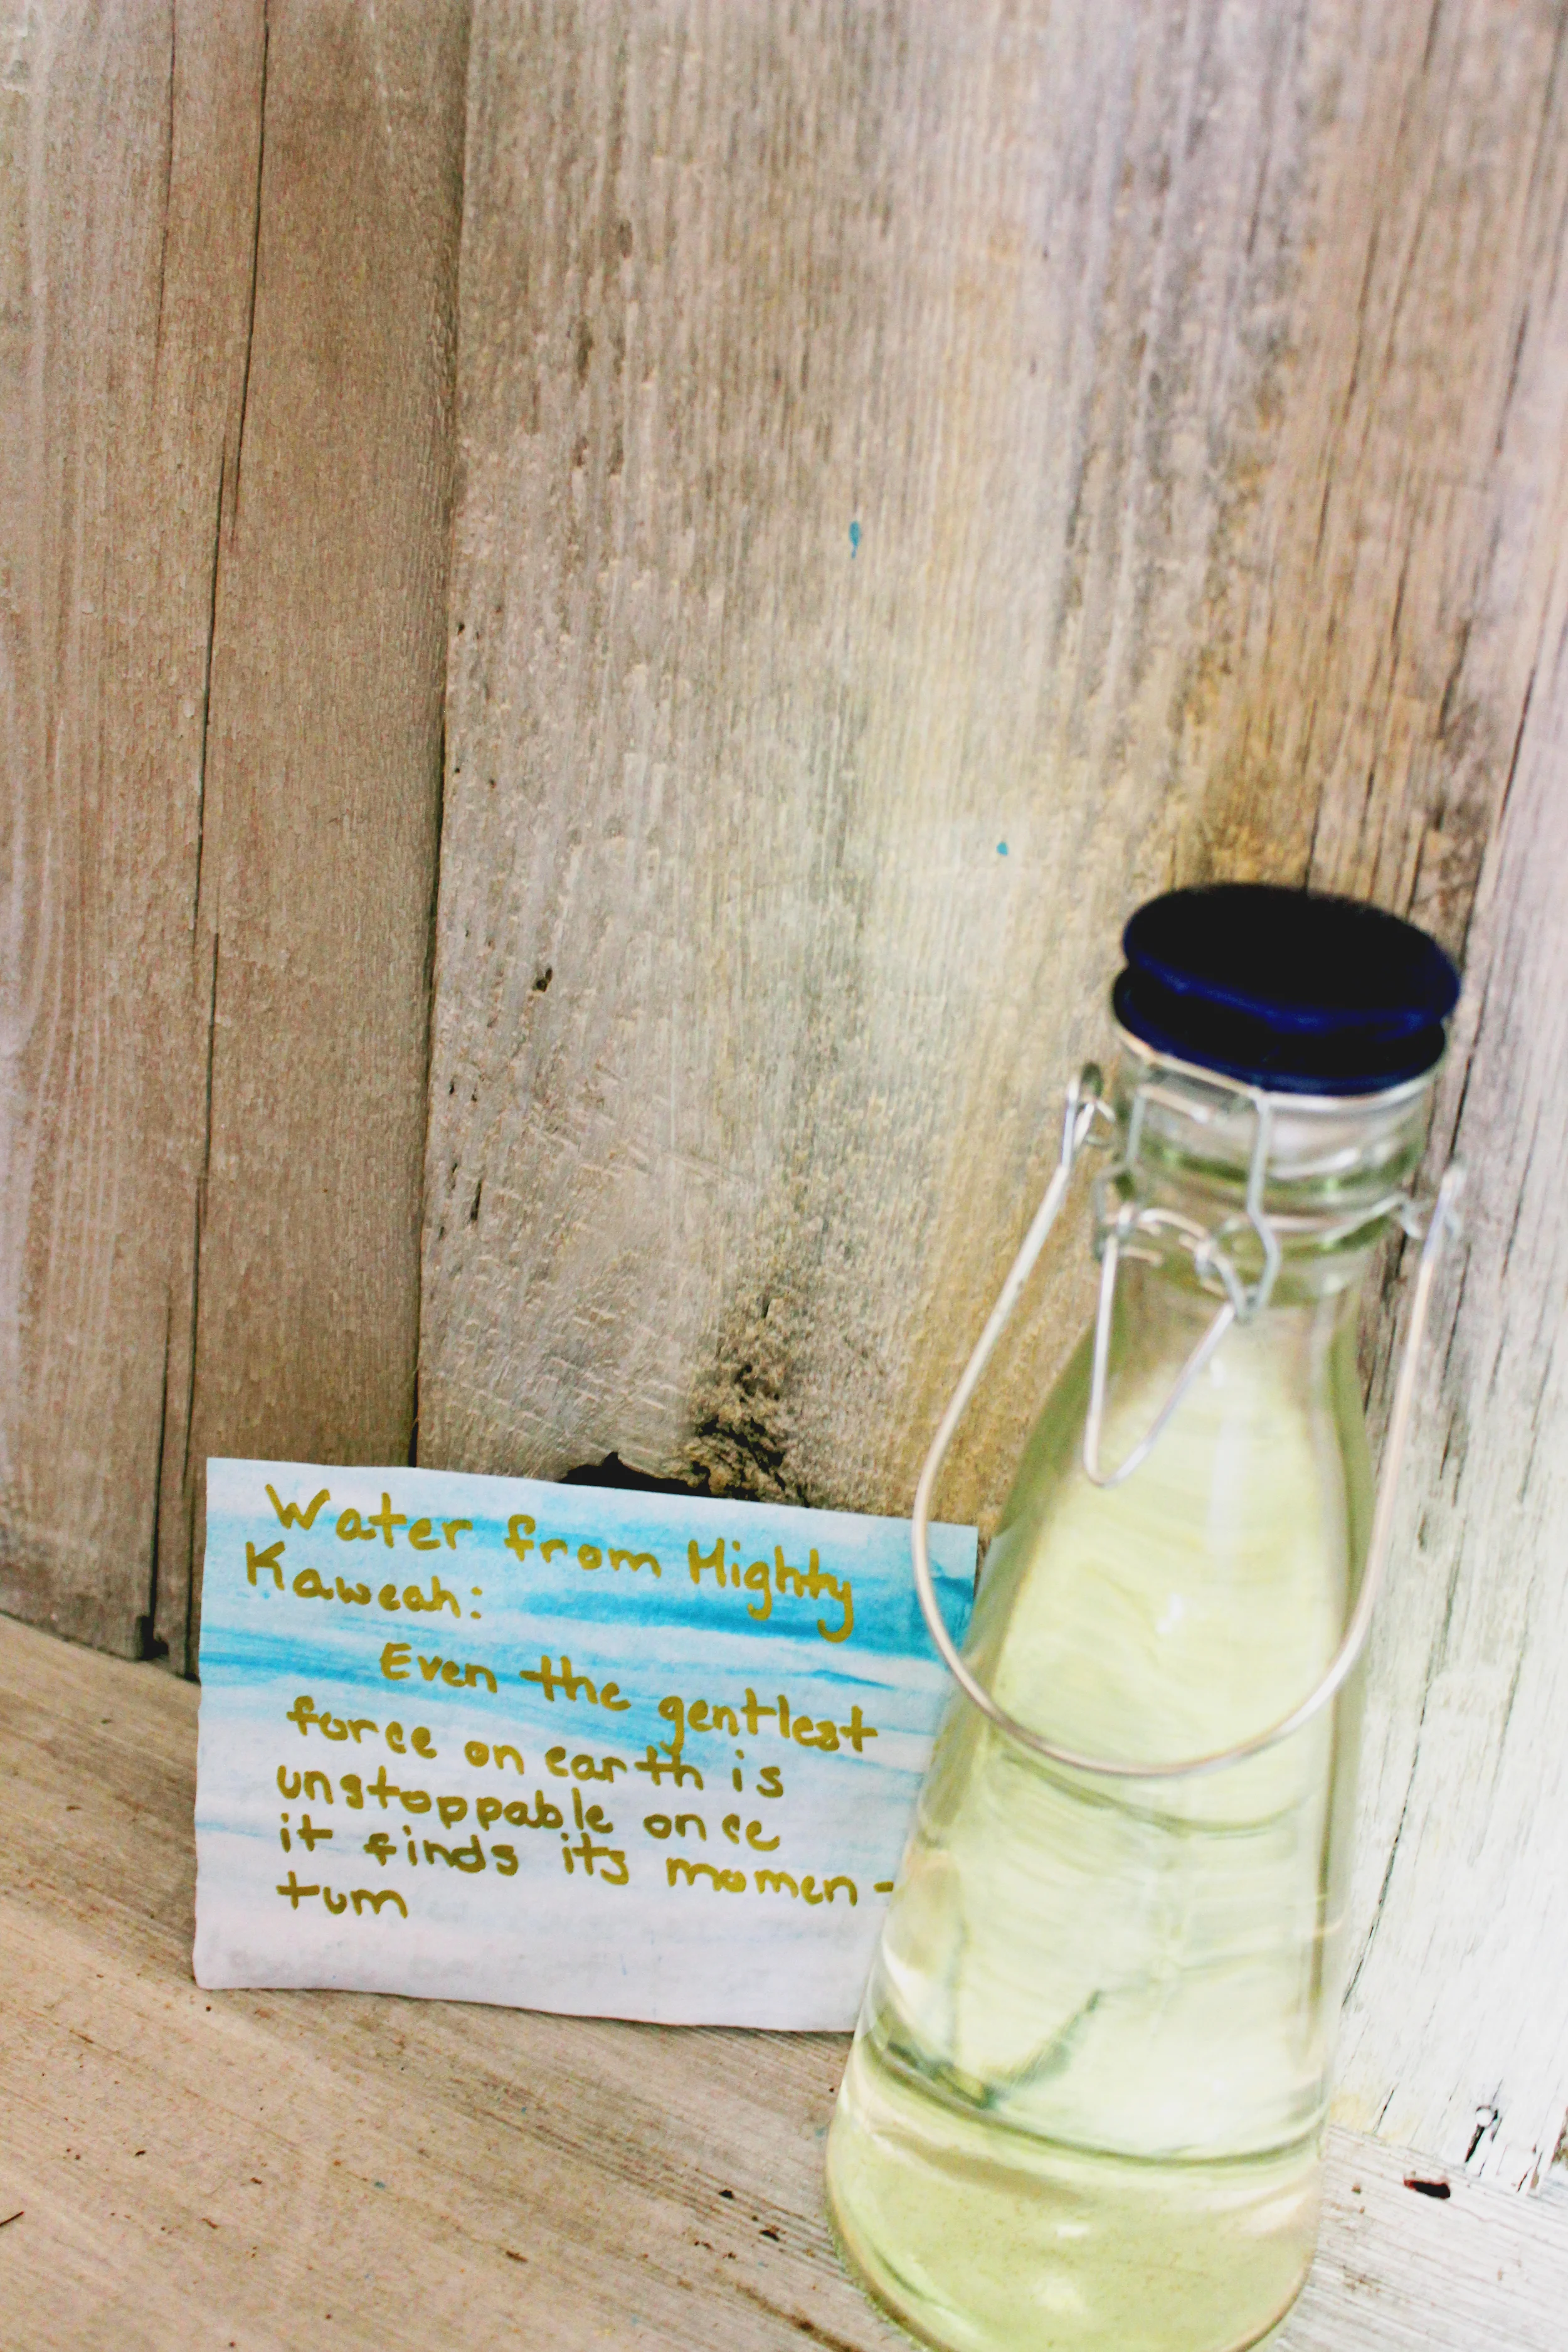 Water from Mighty
Kaweah:
Even the gentlest
force on earth is
unstoppable once
it finds its momen-
tum